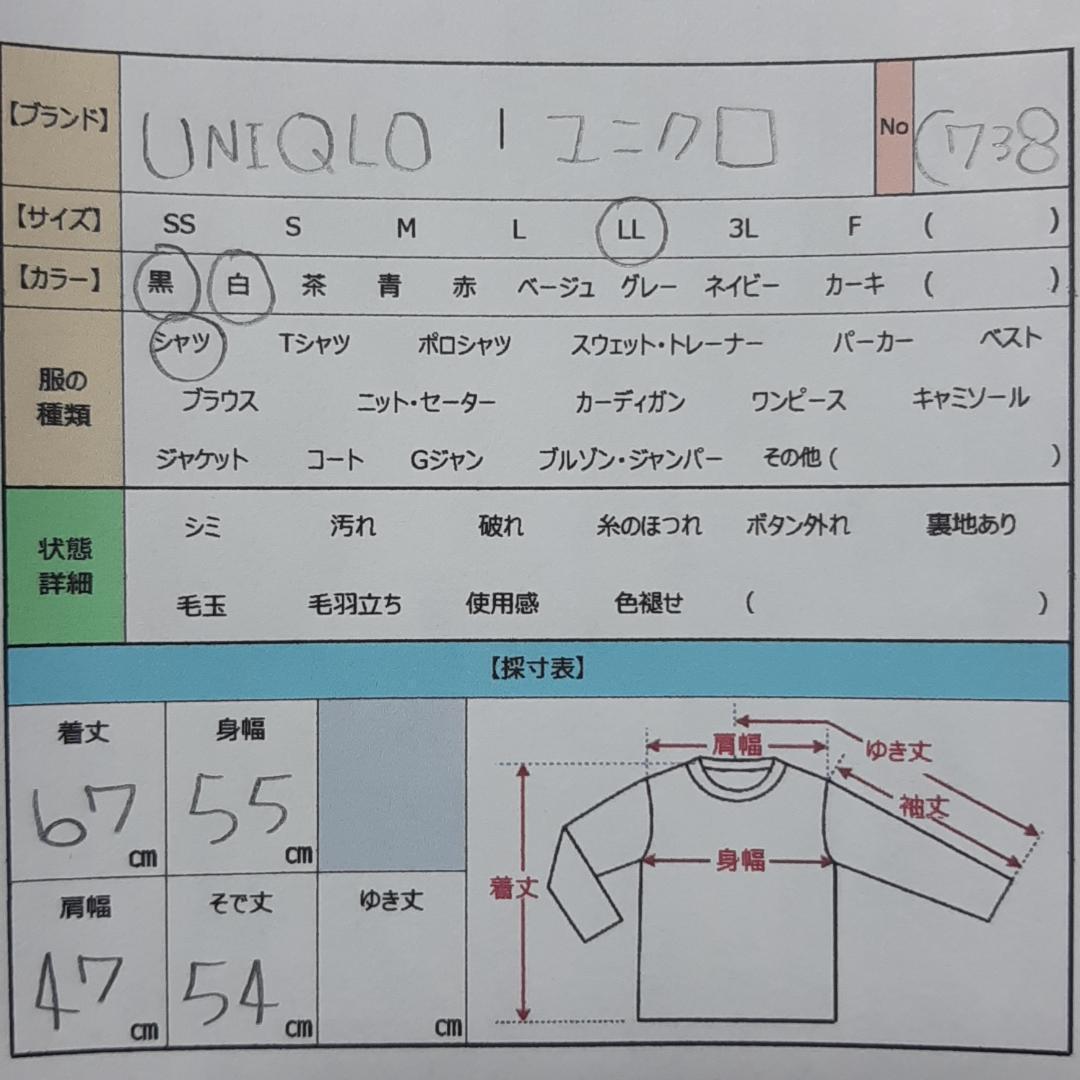 【ブランド】 UNIQLO | ユニクロ No (738
【サイズ】 SS S M L LL 3L F ( )
【カラー】 黒 白 茶 青 赤 ベージュ グレー ネイビー カーキ ( )
服の種類 シャツ Tシャツ ポロシャツ スウェット・トレーナー パーカー ベスト
ブラウス ニット・セーター カーディガン ワンピース キャミソール
ジャケット コート Gジャン ブルゾン・ジャンパー その他 ( )
状態詳細 シミ 汚れ 破れ 糸のほつれ ボタン外れ 裏地あり
毛玉 毛羽立ち 使用感 色褪せ ( )
【採寸表】
着丈 身幅
67 cm 55 cm
肩幅 そで丈 ゆき丈
47 cm 54 cm cm
肩幅 ゆき丈
袖丈
身幅
着丈